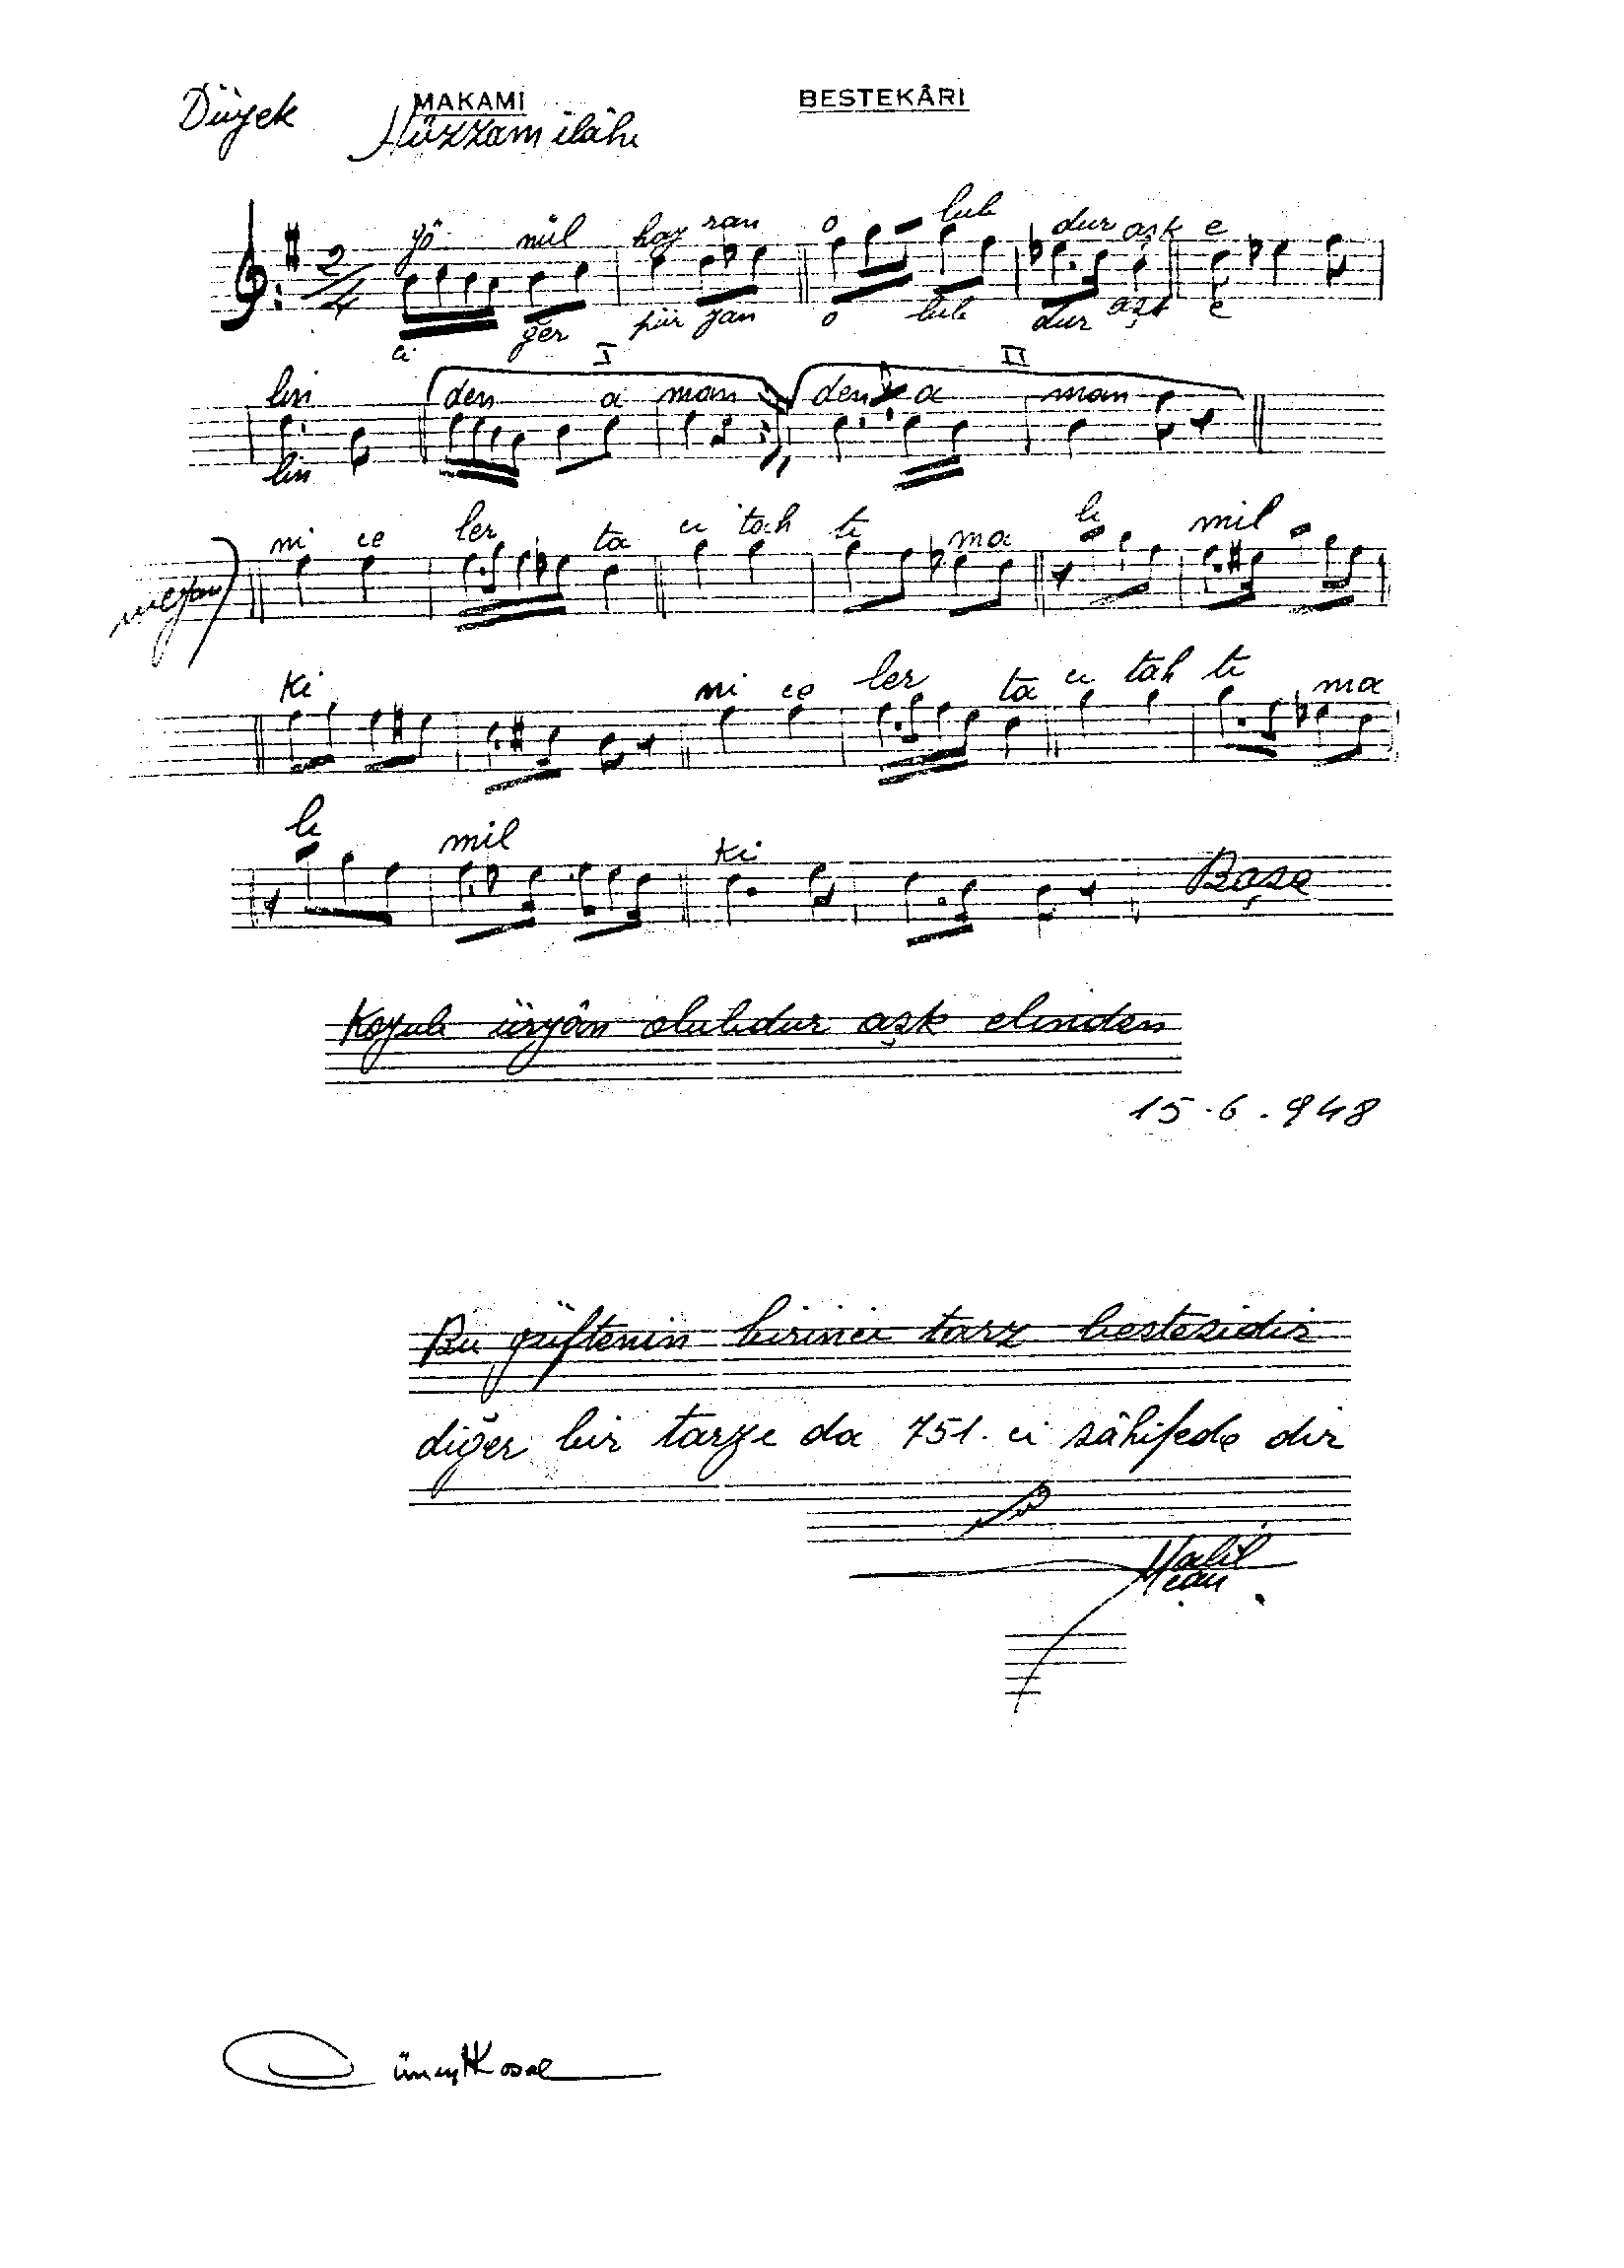 Düyek MAKAMI BESTEKÂRI
Hüzzam ilâhi
2/4 gö nül hay ran o lub dur aşk e
ci ğer pür yan o lub dur aşk e
I II
lin den a man den a man
lin
ni ce ler ta ci tah ti ma li mil
ki ni ce ler ta ci tah ti ma
li mil ki Başa
Koyub üryân olubdur aşk elinden
15.6.948
Bu güftenin birinci tarz bestesidir
diğer bir tarzı da 751. ci sâhifede dir
Halil Can
Cüneyt Kosal